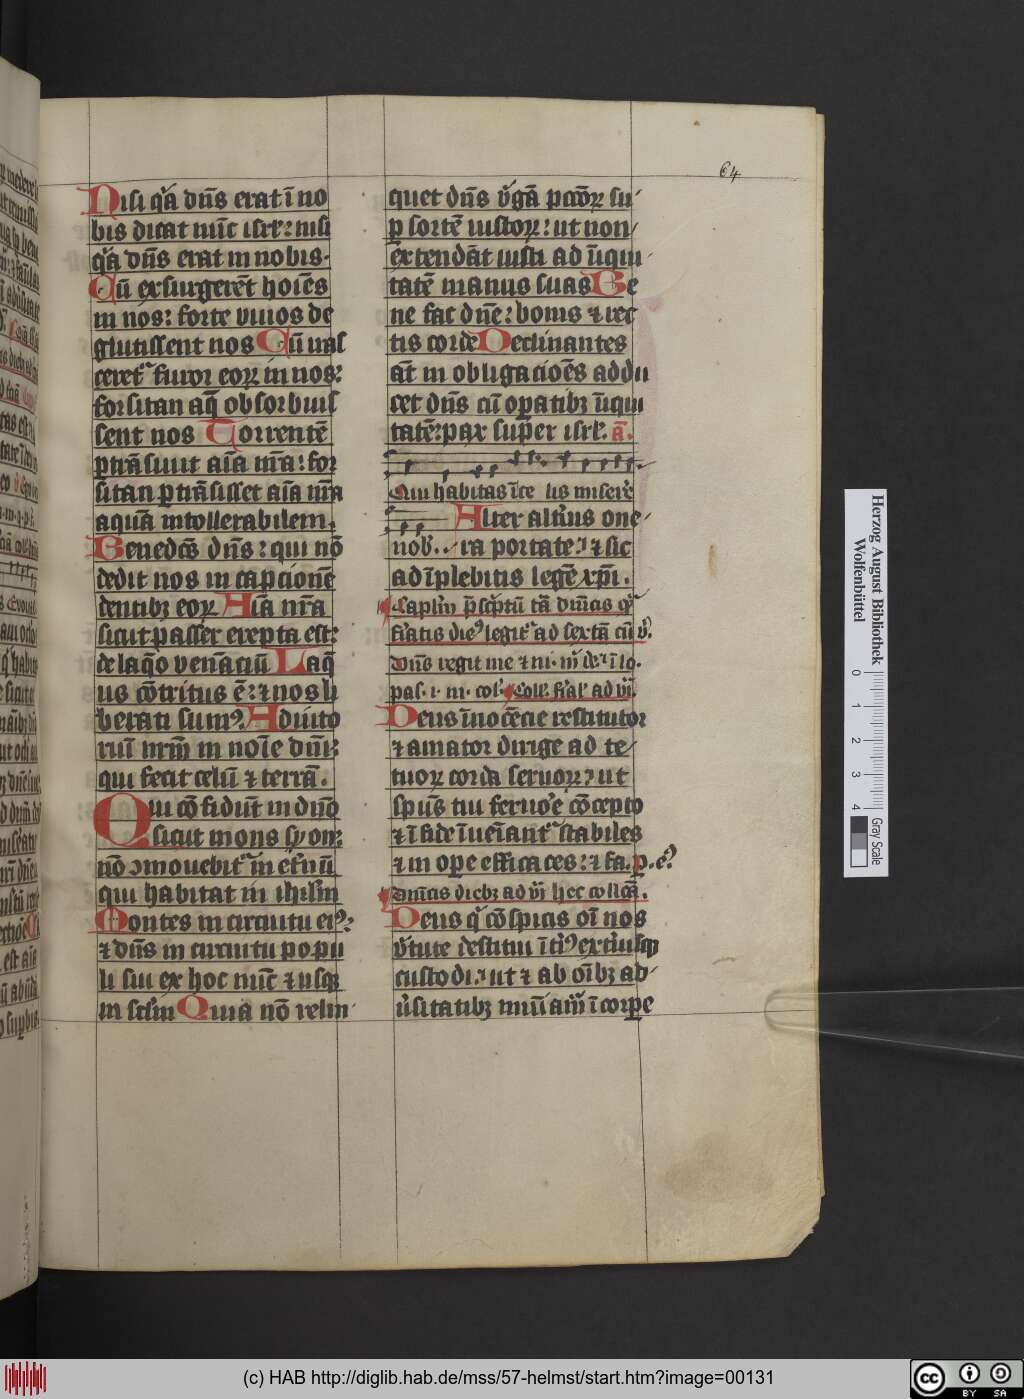 64
Nisi q̄a dn̄s erat ī no
bis dicat nūc isrl̄: nisi
q̄a dn̄s erat in nobis.
Cū exsurgerēt hoīēs
in nos: forte viuos de
glutissent nos Cū iras
ceret᷑ furor eoꝝ in nos:
forsitan aq̄ obsorbuis
sent nos Torrentē
ꝑtrāsiuit aīa nr̄a: for
sitan ꝑtrāsisset aīa nr̄a
aquā intollerabilem.
Benedc̄s dn̄s: qui nō
dedit nos in capcionē
dentibꝫ eoꝝ Aīa nr̄a
sicut passer erepta est:
de laq̄o venanciū Laq̄
us cōtritus ē: ⁊ nos li
berati sumꝰ. Adiuto
riū nr̄m in noīe dn̄i:
qui fecit celū ⁊ terrā.
Qui cōfidūt in dn̄o
sicut mons syon:
nō ꝯmouebit᷑ in et̄nū
qui habitat in ihrl̄m
Montes in circuitu eiꝰ:
⁊ dn̄s in circuitu popu
li sui ex hoc nūc ⁊ usqꝫ
in sclm̄ Quia nō relin
quet dn̄s v̄gā pctōꝝ su
ꝑ sortē iustoꝝ: ut non
extendāt iusti ad iniqui
tatē manus suas Be
ne fac dn̄e: bonis ⁊ rec
tis corde Declinantes
aūt in obligacioēs addu
cet dn̄s cū oꝑātibꝫ iniqui
tatē: pax super isrl̄. a᷑.
Qui habitas ī ce lis misere
nob̄. Alter altīus one
ra portate: ⁊ sic
adīplebitis legē xp̄i.
Dn̄s regit me
Deus īnocēcie restitutor
⁊ amator dirige ad te
tuoꝝ corda seruoꝝ: ut
spūs tui feruore cōcepto
⁊ ī fide īueiant᷑ stabiles
⁊ in oꝑe efficaces: ⁊ fa. p. cꝰ
dn̄icis diebꝫ ad vī hec coll̄cā.
Deus q̄ cōspicis oī nos
v̄tute destitui ī t̄iꝰ ext̄iusqꝫ
custodi: ut ⁊ ab oībꝫ ad
ūsitatibꝫ muniam᷑ ī corꝑe
Herzog August Bibliothek
Wolfenbüttel
0 1 2 3 4
Gray Scale
(c) HAB http://diglib.hab.de/mss/57-helmst/start.htm?image=00131
cc BY SA